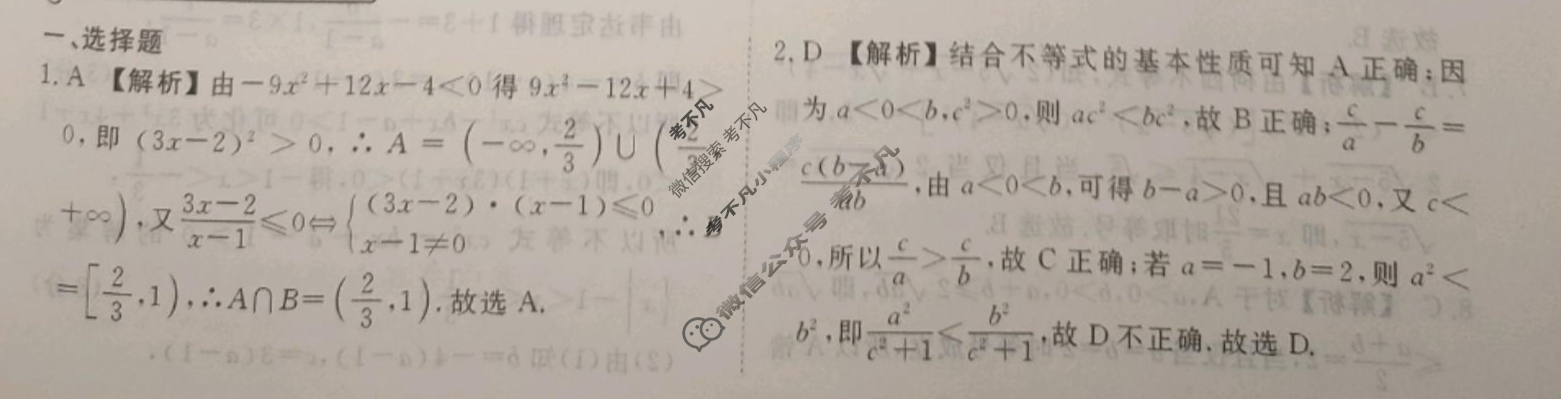 一、选择题
1. A 【解析】由-9x²+12x-4<0 得 9x²-12x+4>
0,即 (3x-2)²>0,∴ A=(-∞,2/3)∪(2/3
+∞),又 (3x-2)/(x-1)≤0⇔{(3x-2)·(x-1)≤0 x-1≠0,∴B
=[2/3,1),∴A∩B=(2/3,1).故选 A.
2. D 【解析】结合不等式的基本性质可知 A 正确;因
为 a<0<b,c²>0,则 ac²<bc²,故 B 正确;c/a-c/b=
c(b-a)/ab,由 a<0<b,可得 b-a>0,且 ab<0,又 c<
0,所以 c/a>c/b,故 C 正确;若 a=-1,b=2,则 a²<
b²,即 a²/(c²+1)<b²/(c²+1),故 D 不正确.故选 D.
考不凡
微信搜索 考不凡
考不凡小程序
微信公众号 考不凡